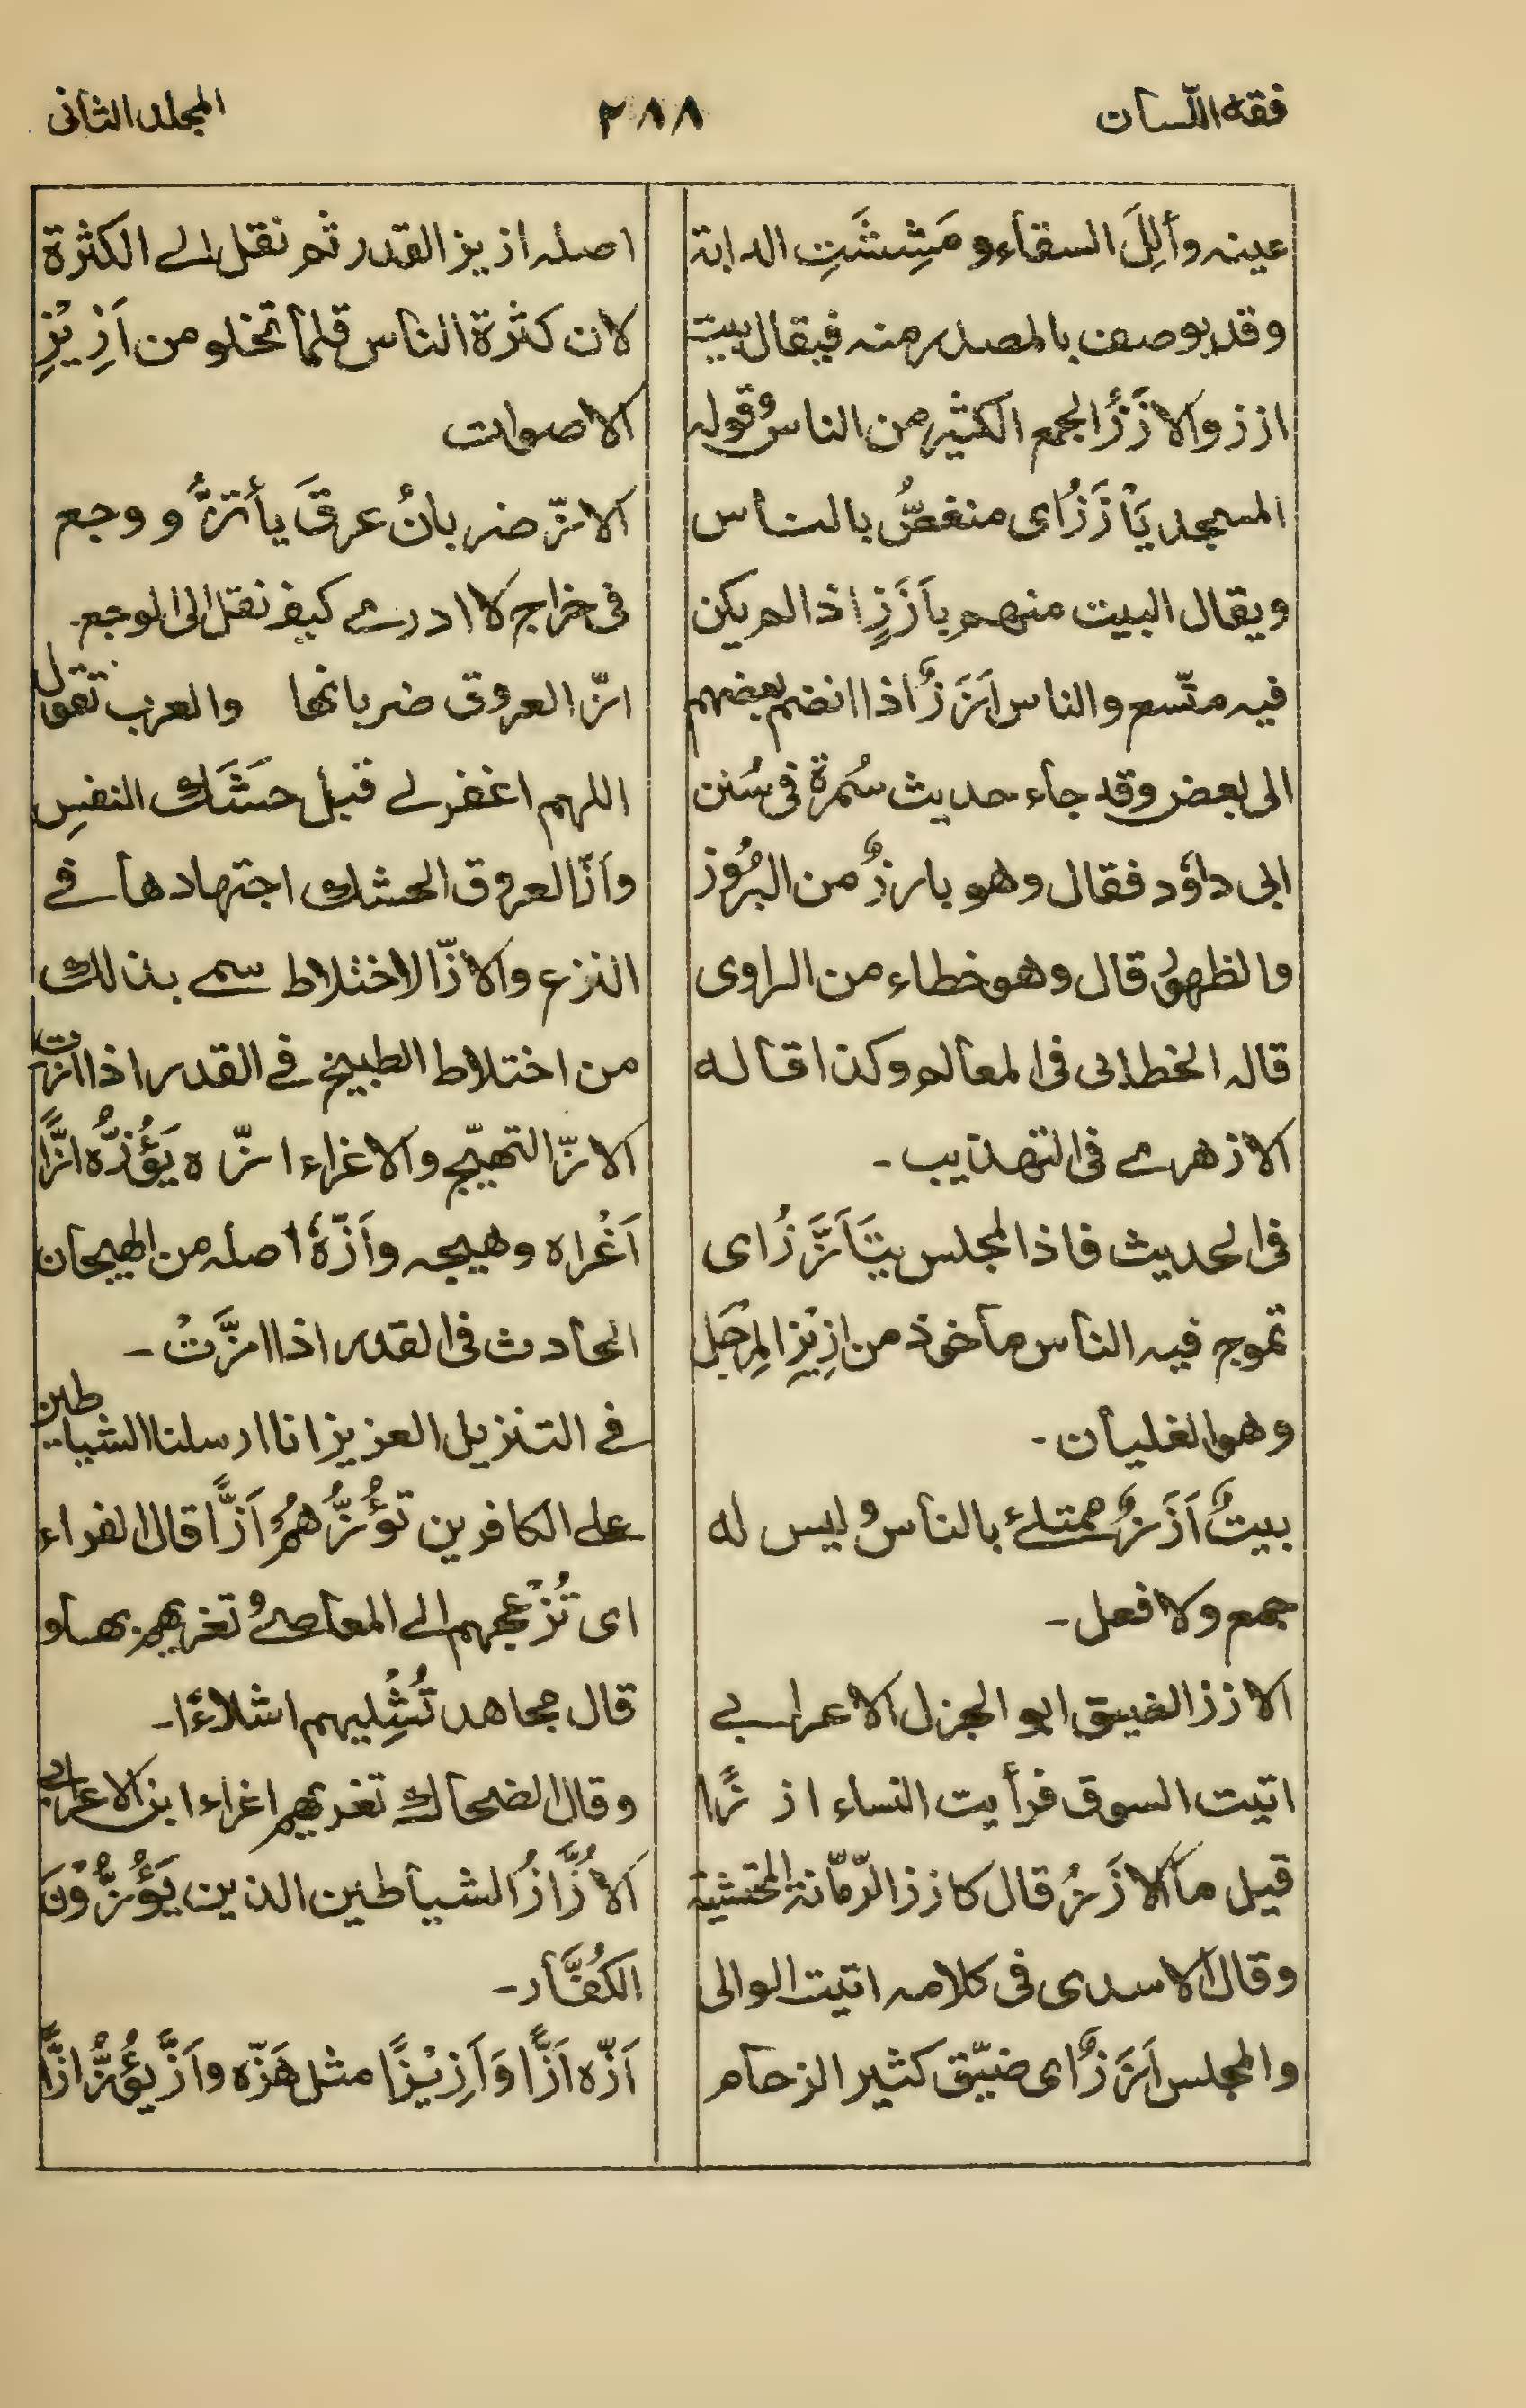 فقه اللّسان
٢٨٨
المجلد الثانى
عينه وأَلِلَ السقاء و مَشِشَتِ الدابة
وقد يوصف بالمصدر منه فيقال بيت
ازز والازَزُ الجمع الكثير من الناس وقوله
المسجد يَأزَزُ اى منغصٌّ بالناس
ويقال البيت منهم بأَزَزٍ اذا لم يكن
فيه متّسع والناس اَزَزٌ اذا انضم بعضهم
الى بعض وقد جاء حديث سُمرة فى سُنن
ابى داؤد فقال وهو بارزٌ من البُرُوز
والظهور قال وهو خطاء من الراوى
قاله الخطابى فى المعالم وكذا قاله
الازهرى فى التهذيب -
فى الحديث فاذا المجلس يتَأَزَّزُ اى
تموج فيه الناس مأخوذ من ازِيْزِ المِرجَل
وهو الغليان -
بيتٌ اَزَزٌ ممتلئ بالناس وليس له
جمع ولا فعل -
الازز الضيق ابو الجزل الاعرابى
اتيت السوق فرأيت النساء ازَزًا
قيل ما الازَزُ قال كازز الرّمّانة المحتشية
وقال الاسدى فى كلامه اتيت الوالى
والمجلس اَزَزٌ اى ضيّق كثير الزحام
اصله ازيز القدر ثم نقل الى الكثرة
لان كثرة الناس قلما تخلو من اَزِيْزِ
الاصوات
الازّ ضربانُ عرقَ يأتزُّ و وجع
فى خراج لا ادرى كيف نقل الى الوجع -
ازّ العروق ضربانها والعرب تقول
اللهم اغفرلى قبل حَشَكِ النفسِ
وأَزّ العروق الحشك اجتهادها فى
النزع والازّ الاختلاط سمى بذالك
من اختلاط الطبيخ فى القدر اذا ائزت
الازّ التهيّج والاغراء ازّه يَؤُزُّه ازًّا
اَغْراه وهيجه وأَزّهٗ اصله من الهيجان
الحادث فى القدر اذا ائزَّتْ -
فى التنزيل العزيز انا ارسلنا الشياطين
على الكافرين تؤُزُّهُمْ اَزًّا قال الفراء
اى تُزْعجهم الى المعاصى وتغريهم بها و
قال مجاهد تُشْلِيهم اشلاءً ا-
وقال الضحاك تغريهم اغراء ابن الاعرابى
اَلاُزَّازُ الشياطين الذين يَؤُزُّوْنَ
الكُفَّار -
اَزّه اَزًّا وَأَزِيْزًا مثل هَزّه وأَزَّ يؤُزُّ ازًّا